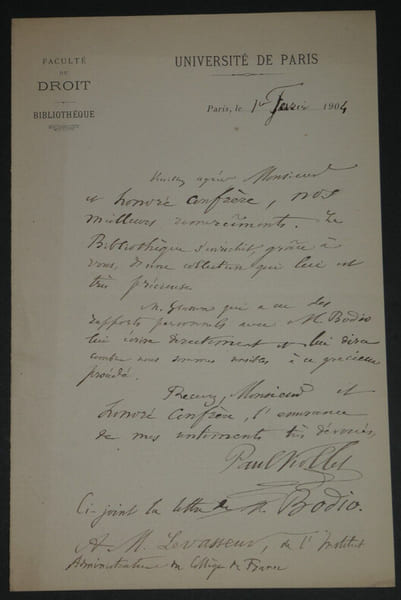 FACULTÉ
DE
DROIT
BIBLIOTHÈQUE
UNIVERSITÉ DE PARIS
Paris, le 1er Février 1904
Veuillez agréer Monsieur
et honoré confrère, nos
meilleurs remerciments. La
Bibliothèque s'enrichit, grâce à
vous, d'une collection qui lui est
très précieuse.
M. qui a eu des
rapports personnels avec M. Bodio
lui écrira directement et lui dira
combien nous sommes sensibles à ce gracieux
procédé.
Recevez, Monsieur et
honoré Confrère, l'assurance
de mes sentiments très dévoués,
Paul Viollet
Ci-joint la lettre de M. Bodio.
A M. Levasseur, de l'Institut
Administrateur du Collège de France